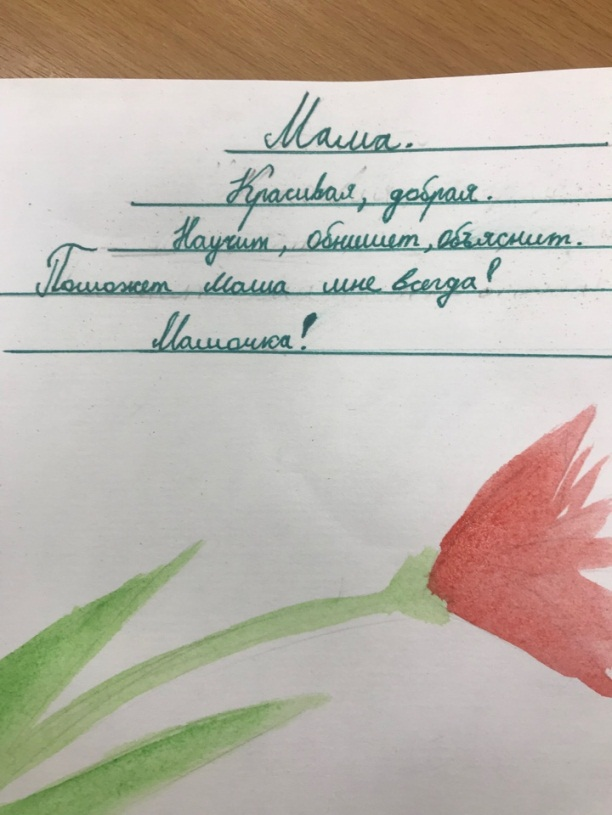 Мама.
Красивая, добрая.
Научит, обнимет, объяснит.
Поможет мама мне всегда!
Мамочка!